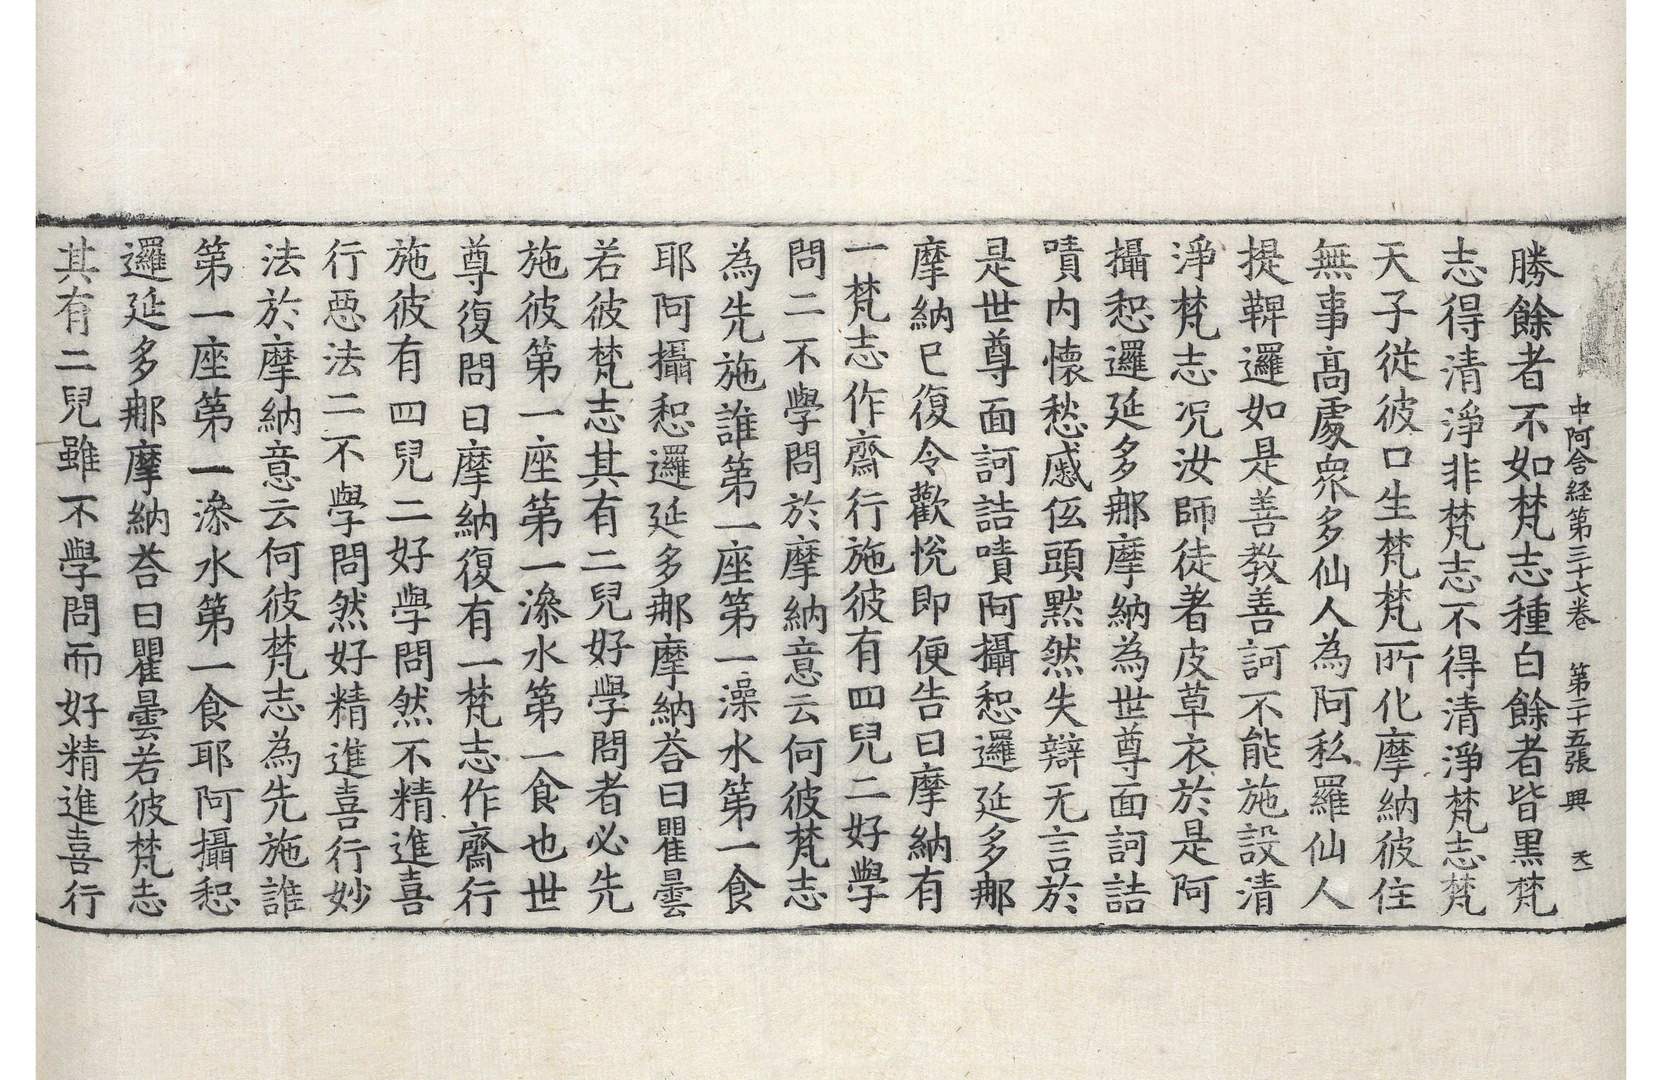 中阿含経第三十七巻　第二十五張　興
勝餘者不如梵志種白餘者皆黒梵
志得清淨非梵志不得清淨梵志梵
天子從彼口生梵梵所化摩納彼住
無事髙處衆多仙人為阿私羅仙人
提鞞邏如是善教善訶不能施設清
淨梵志况汝師徒著皮草衣於是阿
攝惒邏延多那摩納為世尊面訶詰
嘖内懐愁慼伍頭黙然失辯无言於
是世尊面訶詰嘖阿攝惒邏延多那
摩納已復令歡恱即便告曰摩納有
一梵志作齋行施彼有四兒二好學
問二不學問於摩納意云何彼梵志
為先施誰第一座第一澡水第一食
耶阿攝惒邏延多那摩納荅曰瞿曇
若彼梵志其有二兒好學問者必先
施彼第一座第一澡水第一食也世
尊復問曰摩納復有一梵志作齋行
施彼有四兒二好學問然不精進喜
行惡法二不學問然好精進喜行妙
法於摩納意云何彼梵志為先施誰
第一座第一澡水第一食耶阿攝惒
邏延多那摩納荅曰瞿曇若彼梵志
其有二兒雖不學問而好精進喜行